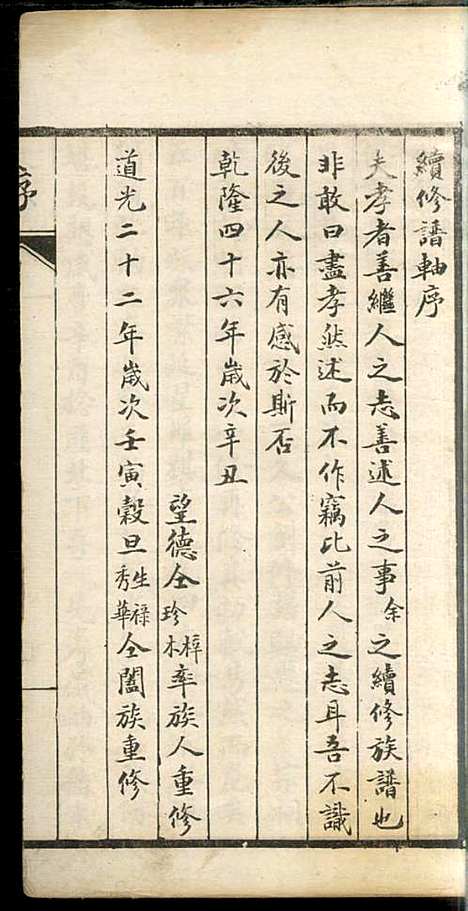 續修譜軸序
夫孝者善繼人之志善述人之事余之續修族譜也
非敢曰盡孝然述而不作竊比前人之志耳吾不識
後之人亦有感於斯否
乾隆四十六年歲次辛丑
望德仝珍梓木率族人重修
道光二十二年歲次壬寅穀旦生祿秀華仝闔族重修
序